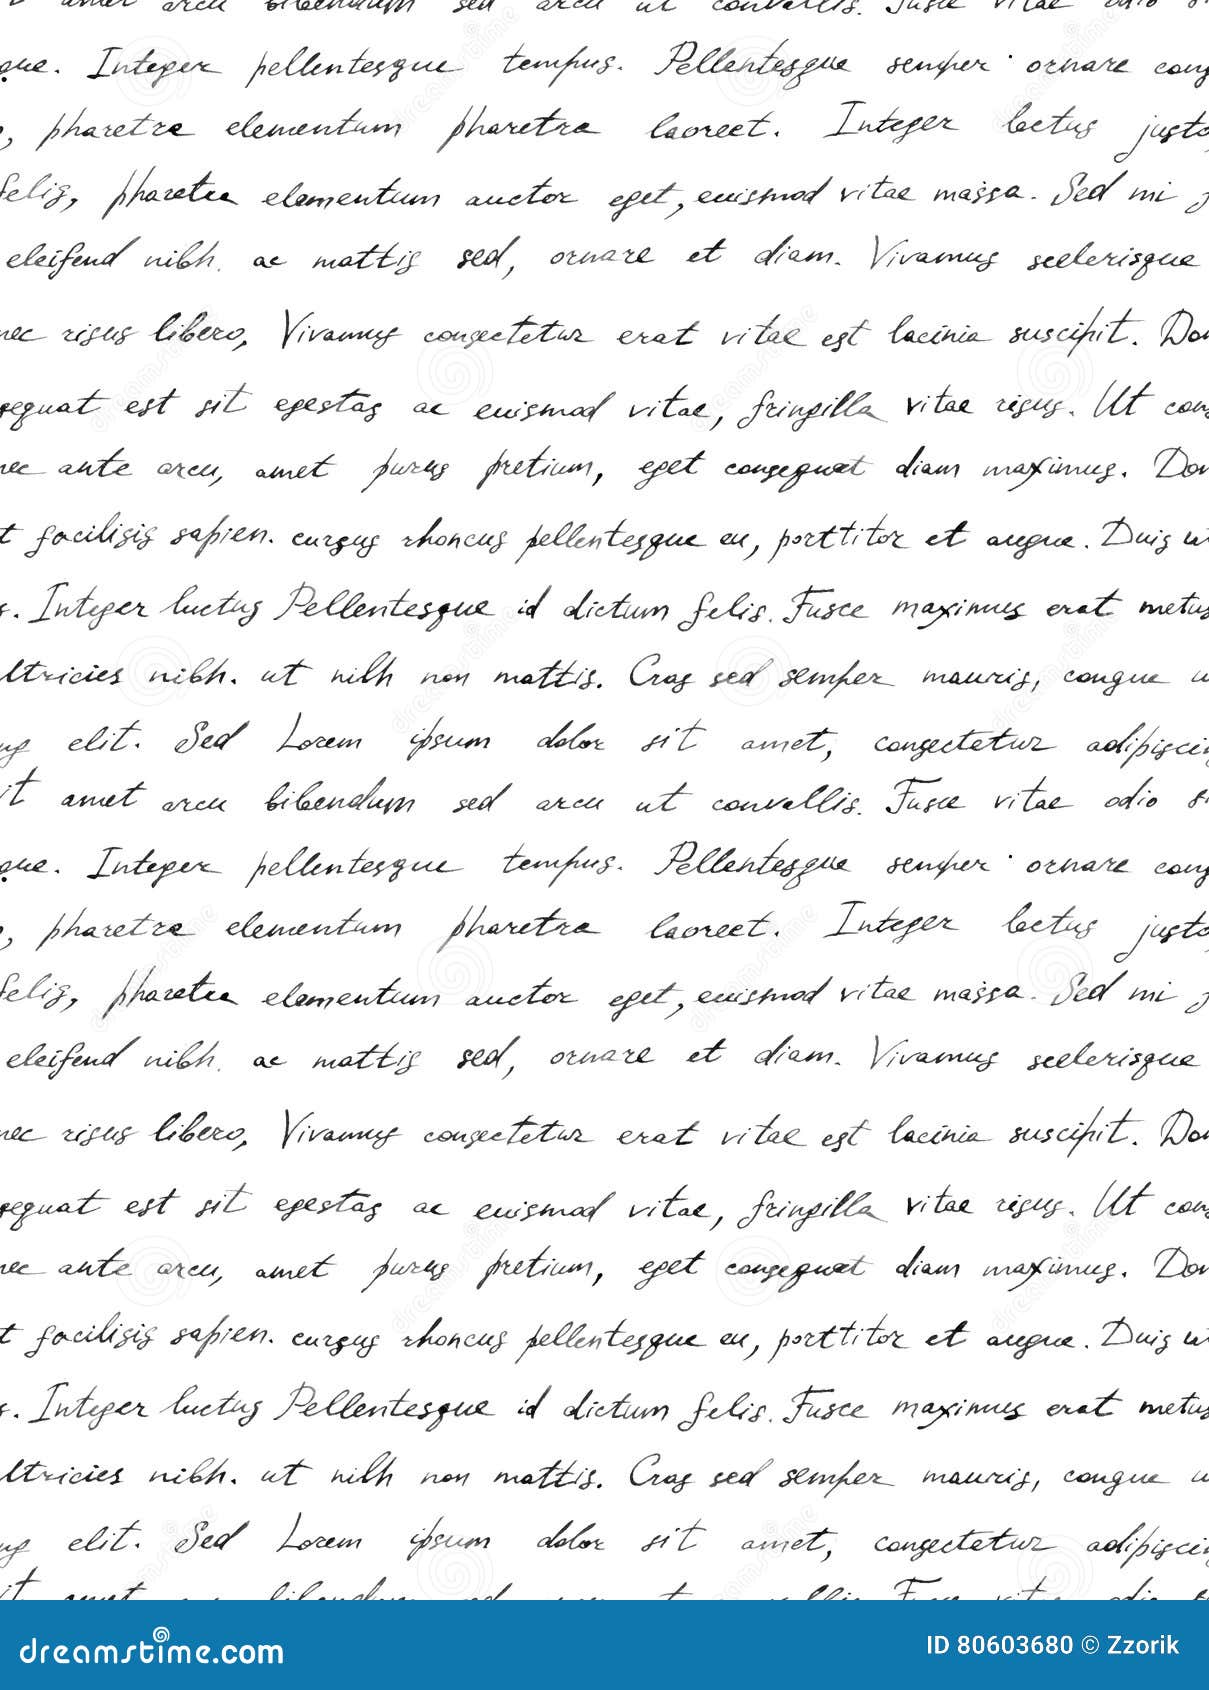 amet arcu bibendum sed arcu ut convallis. Fusce vitae odio
que. Integer pellentesque tempus. Pellentesque semper ornare cong
, pharetra elementum pharetra laoreet. Integer loctus justo
felis, pharetra elementum auctor eget, euismod vitae massa. Sed mi
eleifend nibh. ac mattis sed, ornare et diam. Vivamus scelerisque
nec risus libero, Vivamus consectetur erat vitae est lacinia suscipit. Don
sequat est sit egestas ac euismod vitae, fringilla vitae risus. Ut cons
nec ante arcu, amet purus pretium, eget consequat diam maximus. Don
t facilisis sapien. cursus rhoncus pellentesque eu, porttitor et augue. Duis ut
s. Integer luctus Pellentesque id dictum felis. Fusce maximus erat metus
ltricies nibh. ut nilh non mattis. Cras sed semper mauris, congue u
ng elit. Sed Lorem ipsum dolor sit amet, consectetur adipiscin
it amet arcu bibendum sed arcu ut convallis. Fusce vitae odio s
que. Integer pellentesque tempus. Pellentesque semper ornare cong
, pharetra elementum pharetra laoreet. Integer loctus justo
felis, pharetra elementum auctor eget, euismod vitae massa. Sed mi
eleifend nibh. ac mattis sed, ornare et diam. Vivamus scelerisque
nec risus libero, Vivamus consectetur erat vitae est lacinia suscipit. Don
sequat est sit egestas ac euismod vitae, fringilla vitae risus. Ut cons
nec ante arcu, amet purus pretium, eget consequat diam maximus. Don
t facilisis sapien. cursus rhoncus pellentesque eu, porttitor et augue. Duis ut
s. Integer luctus Pellentesque id dictum felis. Fusce maximus erat metus
ltricies nibh. ut nilh non mattis. Cras sed semper mauris, congue u
ng elit. Sed Lorem ipsum dolor sit amet, consectetur adipiscin
it amet
dreamstime.com ID 80603680 © Zzorik